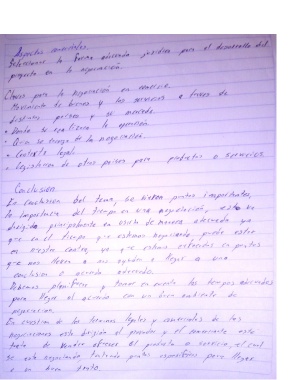 Aspectos comerciales.
Seleccionar la forma adecuada jurídica para el desarrollo del
proyecto en la negociación.
Claves para la negociación en comercio
Movimiento de bienes y los servicios a través de
distintos países y su mercado.
• Donde se realizará la operación
la negociación.
• Contexto legal
• Legislación de otros países para productos o servicios
Conclusión
En conclusión del tema, se vieron puntos importantes,
la importancia del tiempo en una negociación, esto va
dirigido principalmente en de manera adecuada ya
que en el tiempo que estamos negociando puede estar
en nuestra contra, ya que estamos en puntos
que nos lleven a nos ayuden a llegar a una
conclusión o acuerdo adecuado.
Debemos planificar y tomar en cuenta los tiempos adecuados
para llegar al acuerdo con un buen ambiente de
negociación.
En cuestión de los términos legales y comerciales de las
negociaciones esto dirigido al proveedor y el comerciante este
trata de vender ofrecer el producto o servicio, el cual
se está negociando, puntos para llegar
a un buen trato.